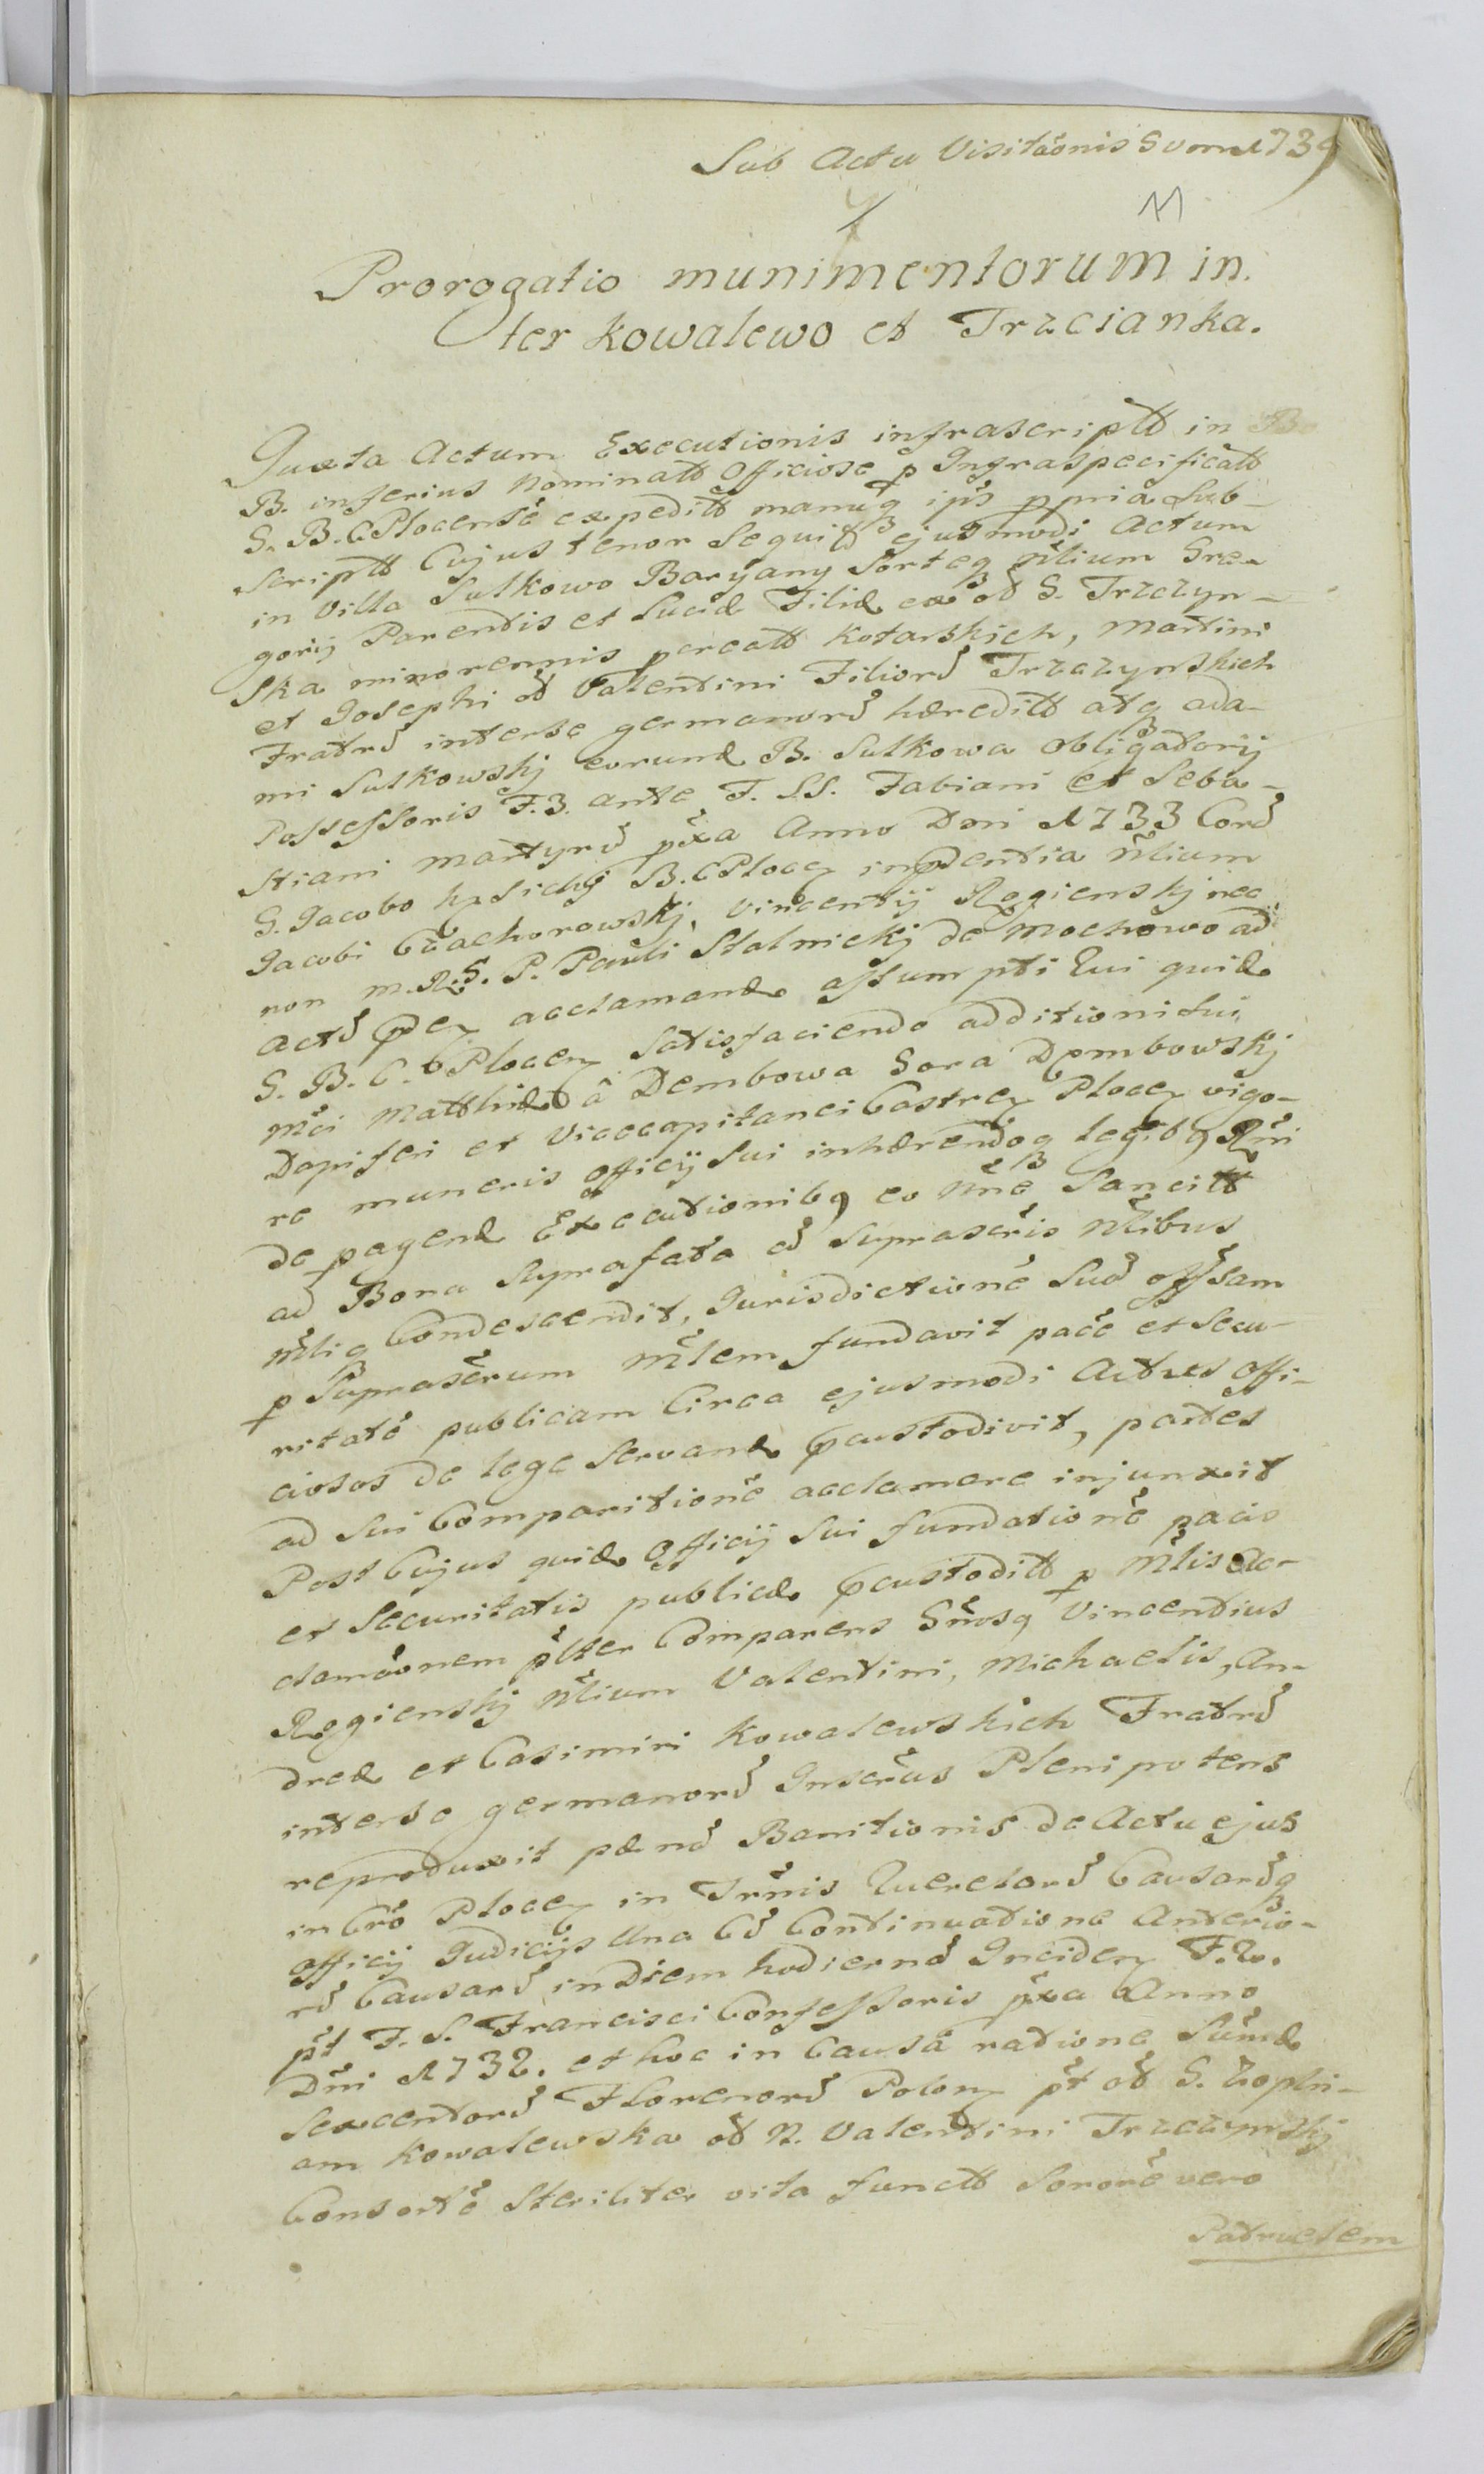 Sub Actu Visitãonis Svom 1739
M
Prorogatio munimentorum in.
ter Kowalewo et Trzcianka.
Juxta Actum Executionis infrascriptt in Bo
B. inferius Nominatt Officiose p Infraspecificatt
S. B. C Plocensẽ expeditt manuq ip̃s ppria Sub-
scriptt Cujus tenor Sequitt ejusmodi Actum
in Villa Sulkowo Baryany Sorteq Nlium Gre-
gorij Parentis et Luciæ Filiæ ex ol S. Trzczyn-
ska minorennis pcreatt Kotarskich, Martini
et Josephi ol Valentini Filiorũ Trzczynskich
Fratrũ interse germanorũ hæreditt atq ada-
mi Sulkowskj eorund B. Sulkowa obligatorij
Possessoris F. 3. ante F. SS. Fabiani et Seba-
stiani Martyrũ pxa Anno Dni 1733 Corũ
G. Jacobo B. C Plocen inpdentia Nlium
Jacobi Cũachorowskj, Vincentij Rogienskj nec
non M. R. S. P. Pauli Stalnickj de Mochowo ad
Actũ pden acclamand assumpti Qui quid
S. B. C. Plocen Satisfaciendo additioni Sui
Mci Matthiæ â Dembowa Gora Dembowskj
Dapiferi et Vicecapitanei Castren Plocen vigo-
re muneris officij Sui inhærendoq legibq Rni
de pagend Executionibq eo nne Sancitt
ad Bona Suprafata cũ Suprascris Nlibus
Mliq Condescendit, Jurisdictionẽ Suã offsam
p Suprascrum Mlem fundavit pacẽ et Secu-
ritatẽ publicam Circa ejusmodi Actus Offi-
ciosos de lege Servand pcustodivit, partes
ad Sui Comparitionẽ acclamare injunxit
Post Cujus quid Officij Sui fundationẽ pacis
et Securitatis publicæ pcustoditt p Mlis ac-
clamãonem plter Comparens Gñosq Vincentius
Rogienskj Nlium Valentini, Michaelis, An-
dreæ et Casimiri Kowalewskich Fratrũ
interse germanorũ Inscrus Plenipotens
reproduxit pænã Banitionis de Actu ejus
in Crõ Plocen in Trñis Querelarũ Causarũq
officij Judicijs Una Cũ Continuatione Anterio-
rũ Causarũ in Diem hodiernã Inciden F. 2.
pt F. S. Francisci Confessoris pxa Anno
Dñi 1732. et hoc in Causa ratione Sũmæ
Sexcentorũ Florenorũ Polon pt ol S. Zophi-
am Kowalewska ol N. Valentini Trzczynskj
Consortẽ Steriliter vita functt Sororẽ vero
Patruelem